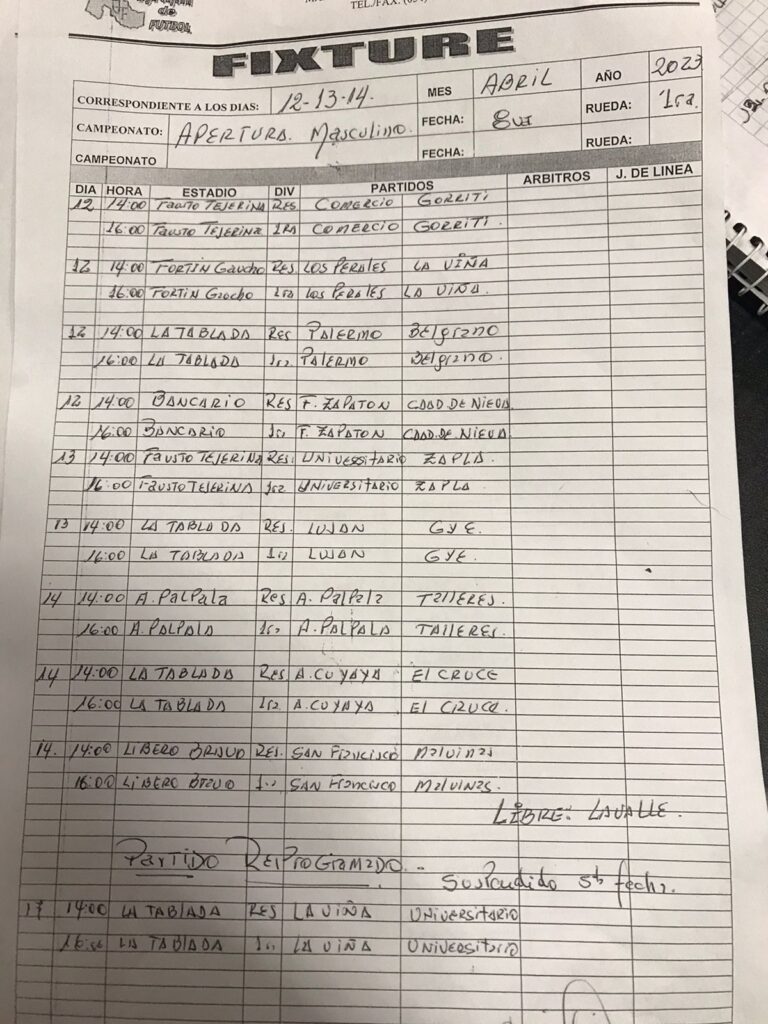 de
FUTBOL
TEL./FAX.
FIXTURE
CORRESPONDIENTE A LOS DIAS: 12-13-14. MES ABRIL AÑO 2023
CAMPEONATO: APERTURA. Masculino. FECHA: 8va RUEDA: 1ra.
CAMPEONATO FECHA: RUEDA:
DIA HORA ESTADIO DIV PARTIDOS ARBITROS J. DE LINEA
12 14:00 Fausto TEJERINA RES COMERCIO GORRITI
16:00 Fausto TEJERINA 1RA COMERCIO GORRITI.
12 14:00 FORTIN Gaucho RES. LOS PERALES LA VIÑA
16:00 FORTIN Gaucho 1ra LOS PERALES LA VIÑA.
12 14:00 LA TABLADA RES PALERMO Belgrano
16:00 LA TABLADA 1ra. PALERMO Belgrano.
12 14:00 BANCARIO RES F. ZAPATON CDAD. DE NIEVA
16:00 BANCARIO 1ra F. ZAPATON CDAD. DE NIEVA
13 14:00 Fausto TEJERINA RES. UNIVERSITARIO ZAPLA.
16:00 FAUSTO TEJERINA 1ra UNIVERSITARIO ZAPLA
13 14:00 LA TABLADA RES. LUJAN GYE.
16:00 LA TABLADA 1ra LUJAN GYE.
14 14:00 A. PALPALA RES A. PALPALA TALLERES.
16:00 A. PALPALA 1ra A. PALPALA TALLERES.
14 14:00 LA TABLADA RES A. CUYAYA El CRUCE
16:00 LA TABLADA 1ra. A. CUYAYA El CRUCE.
14. 14:00 LIBERO BRAVO RES. SAN FRANCISCO MALVINAS
16:00 LIBERO BRAVO 1ra SAN FRANCISCO MALVINAS.
LIBRE: LAVALLE.
PARTIDO REIPROGRAMADO.-
Suspendido 5ta fecha.
17 14:00 LA TABLADA RES LA VIÑA UNIVERSITARIO
LA TABLADA 1ra LA VIÑA UNIVERSITARIO